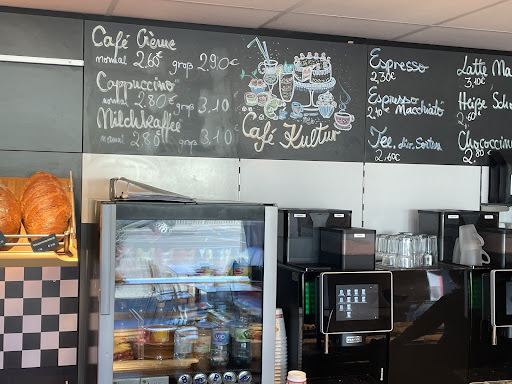 Café Crème
normal 2.60€ groß 2.90€
Cappuccino
normal 2.80€ groß 3.10
Milchkaffee
normal 2.80 groß 3.10
Café Kultur
Espresso
2,30€
Espresso
Macchiato
2,40€
Tee, div. Sorten
2,60€
Latte Ma
3,10€
Heiße Scho
2,60
Chococcino
2,80€